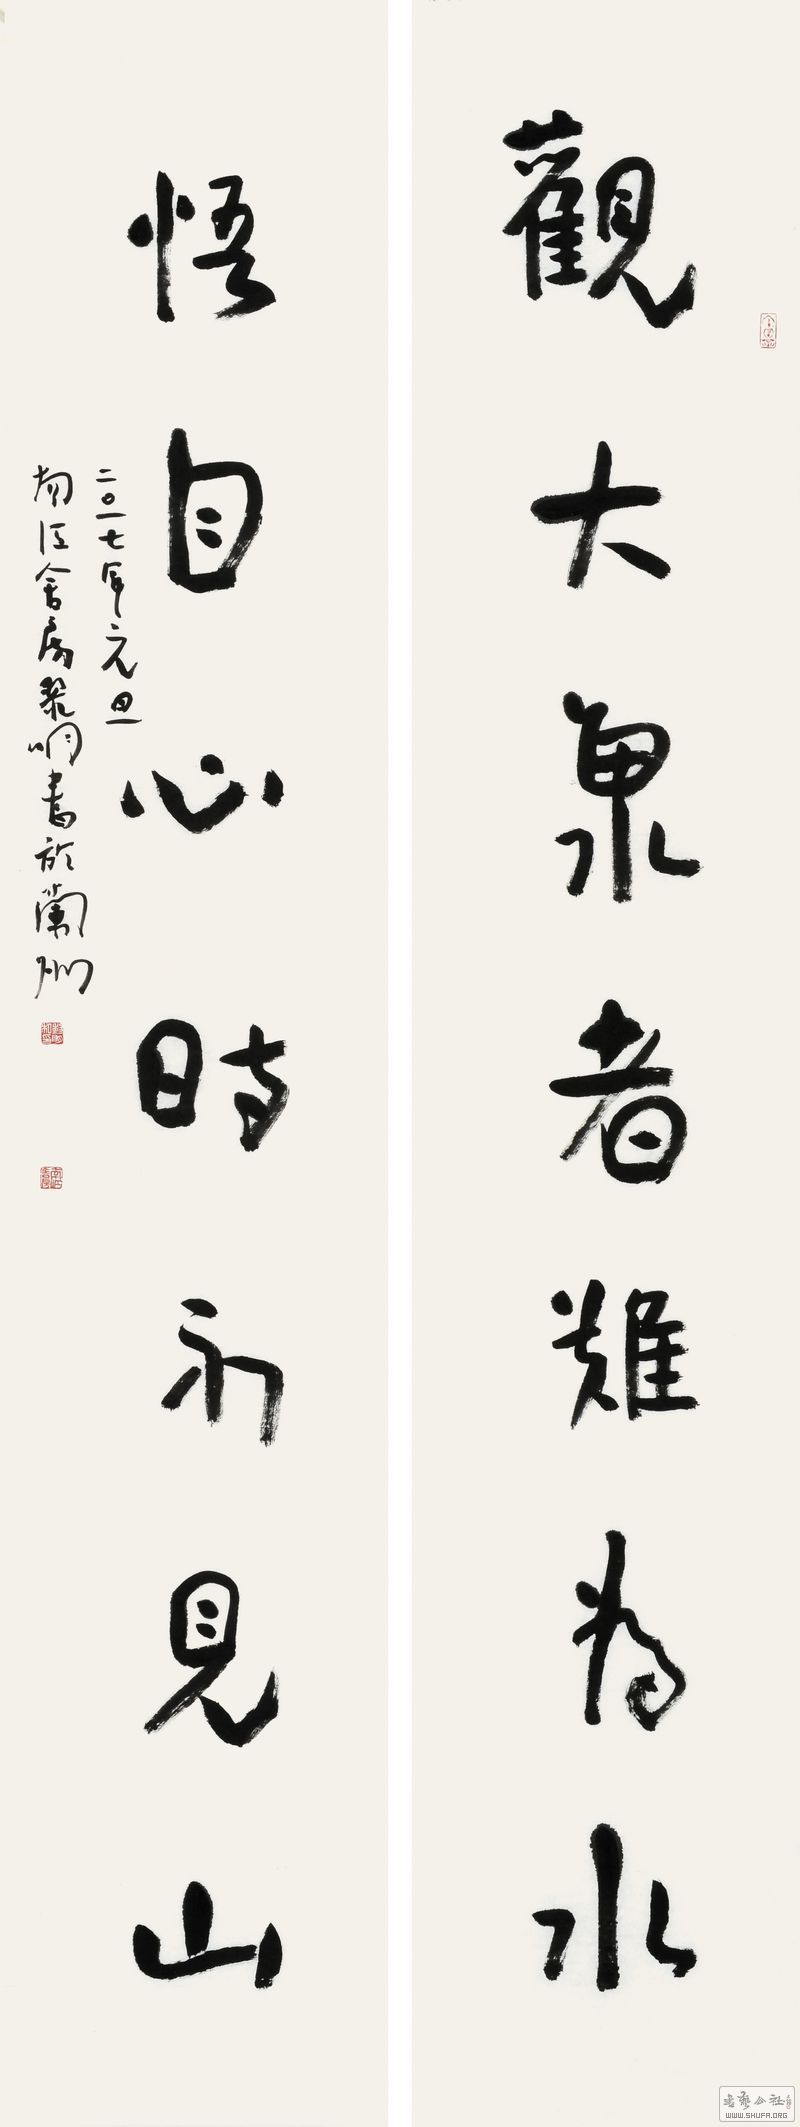 觀大泉者難為水
悟自心時不見山
二〇一七年元旦
南注舍房黎明書於蘭州
書藝公社
WWW.SHUFA.ORG